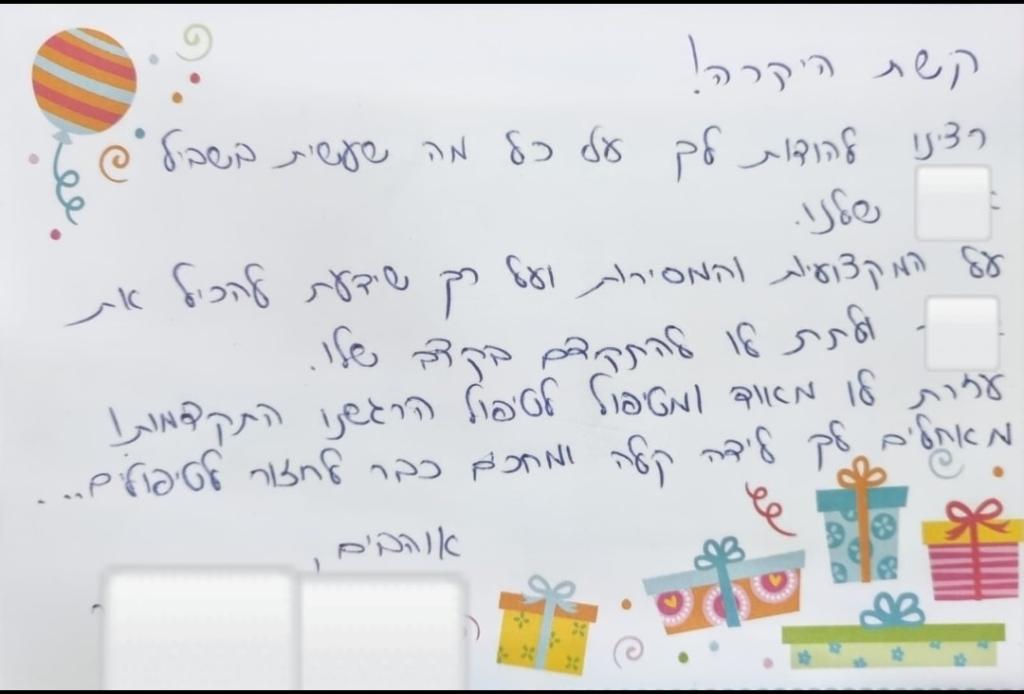 קשת היקרה!
רצינו להודות לך על כל מה שעשית בשביל
שלנו.
על המקצועיות והמסירות ועל כך שידעת להכיל את
ולתת לו להתקדם בקצב שלו.
עזרת לו מאוד ומטיפול לטיפול הרגשנו התקדמות!
מאחלים לך לידה קלה ומחכים כבר לחזור לטיפולים....
אוהבים,